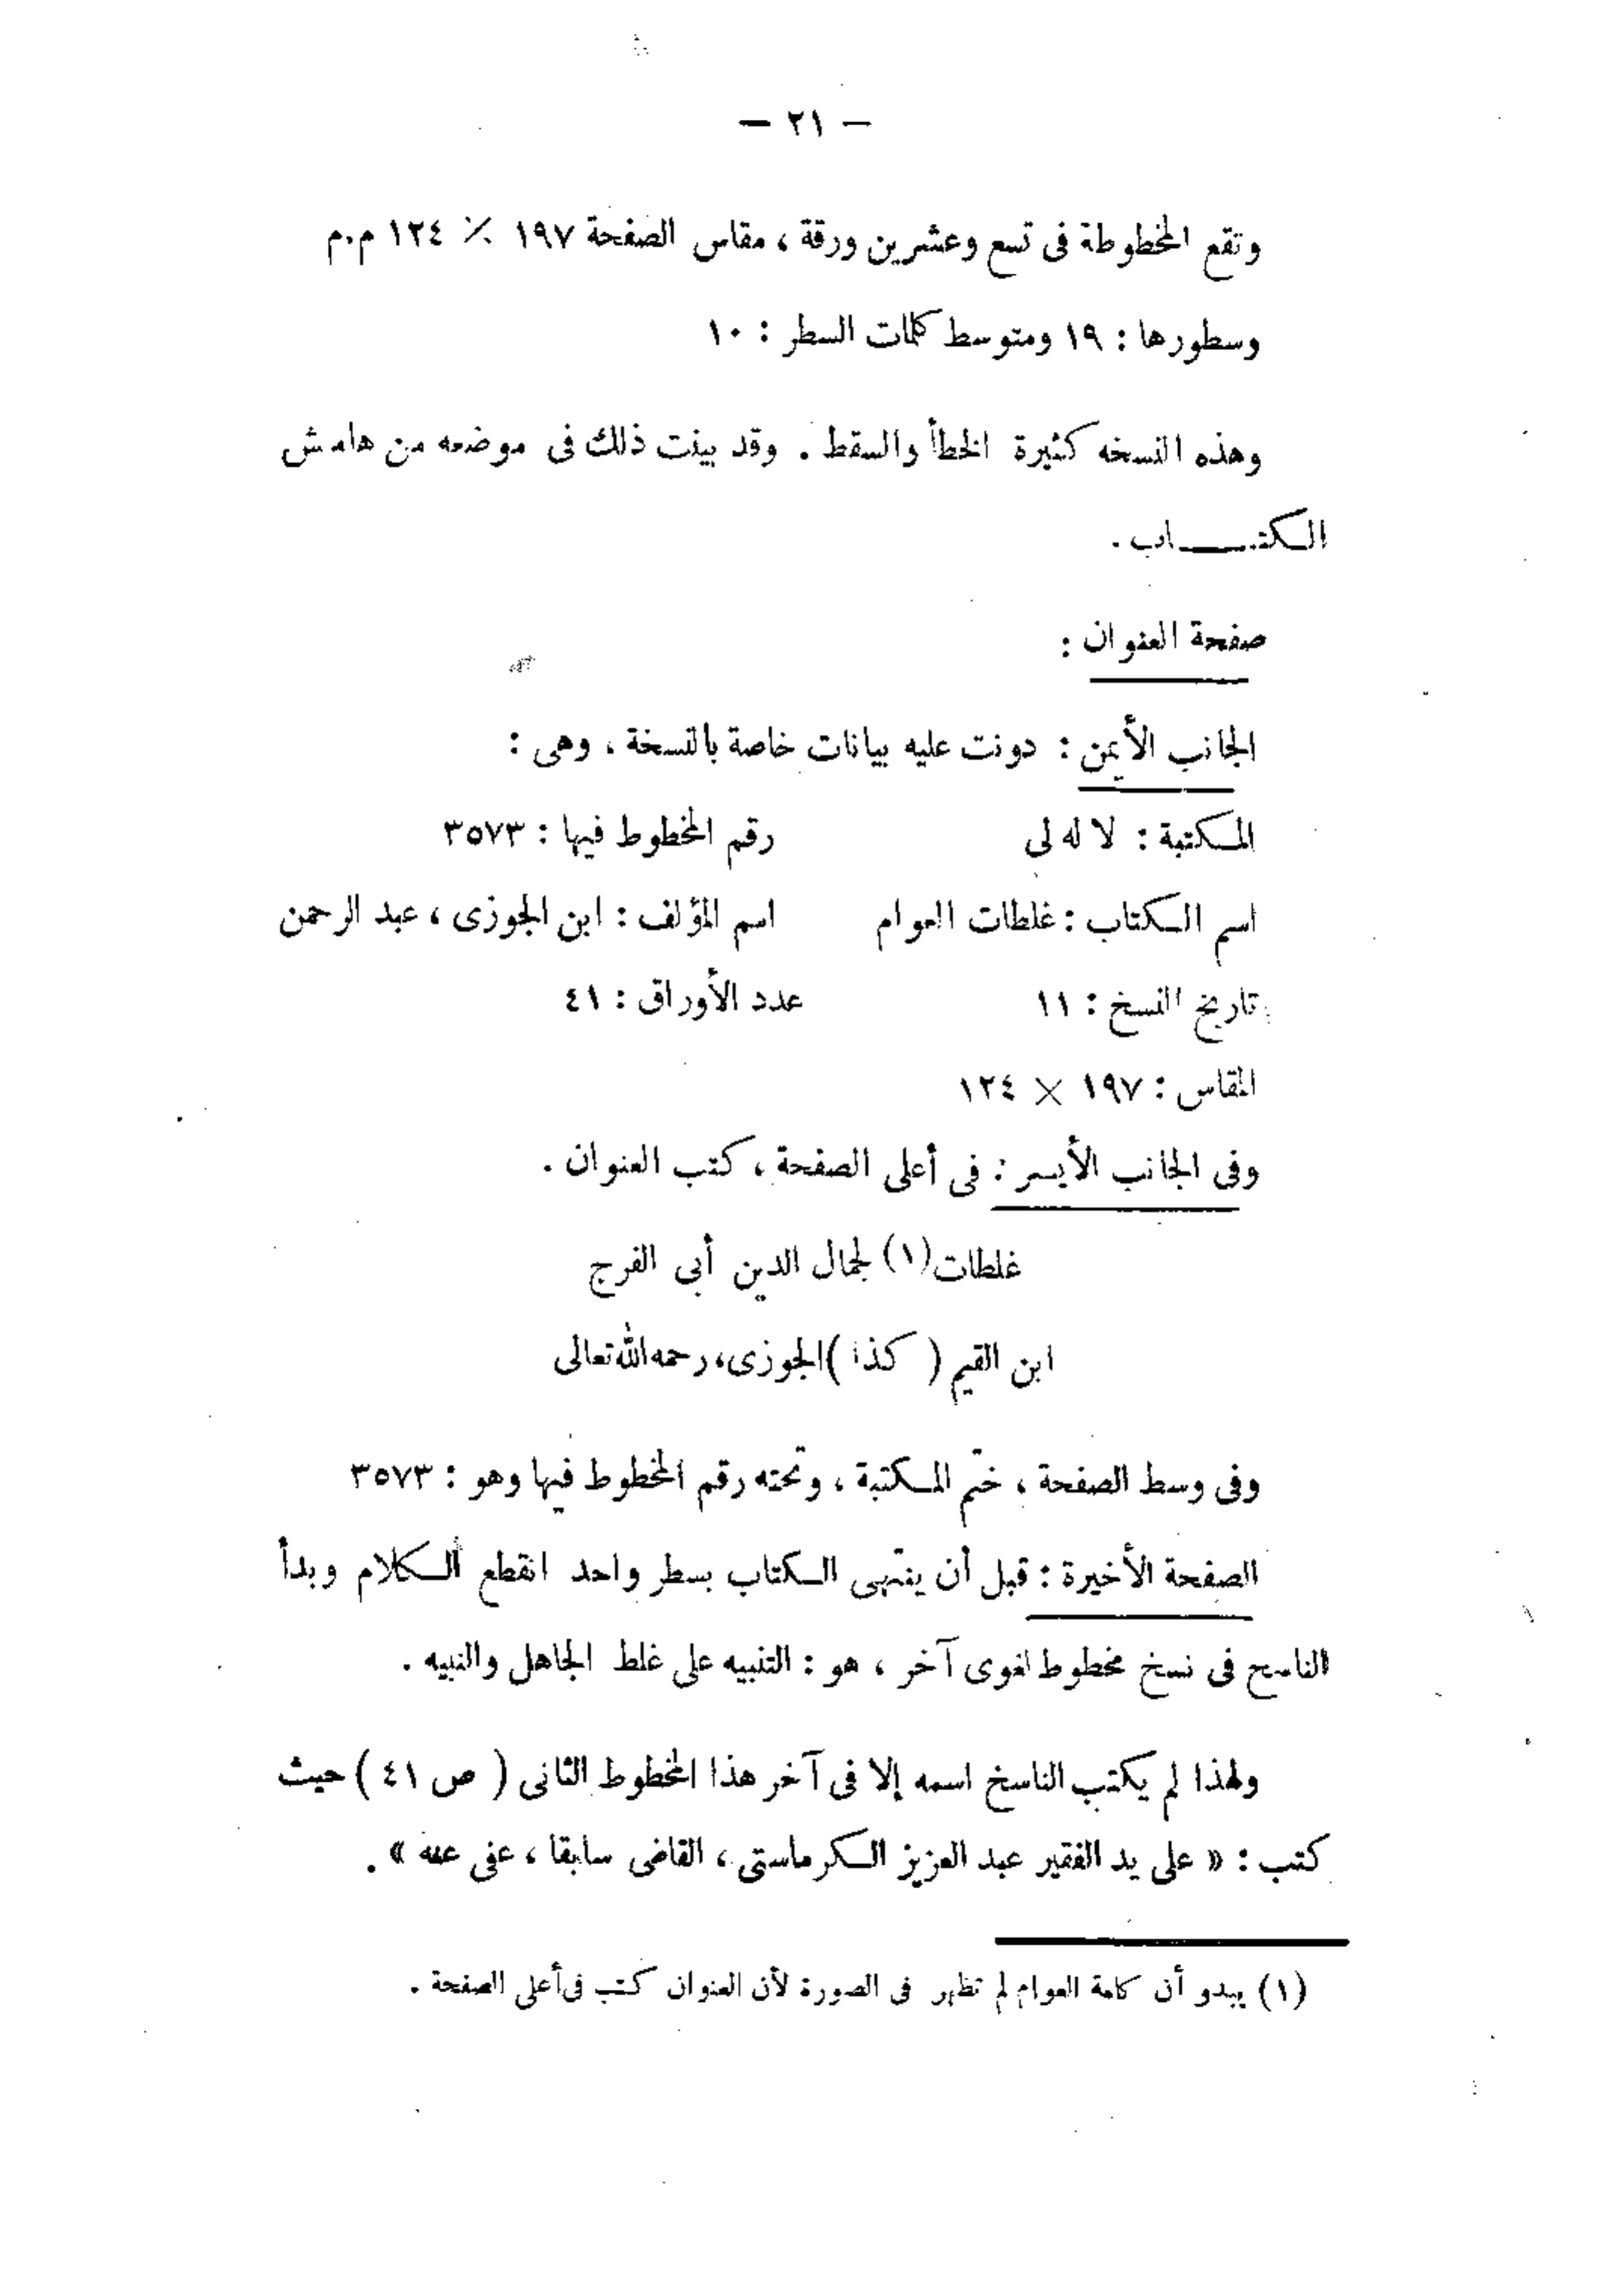 — ٢١ —
وتقع المخطوطة فى تسع وعشرين ورقة ، مقاس الصفحة ١٩٧ × ١٢٤ م.م
وسطورها : ١٩ ومتوسط كلمات السطر : ١٠
وهذه النسخه كثيرة الخطأ والسقط . وقد بينت ذلك فى موضعه من هامش
الكتـــاب .
صفحة العنوان :
الجانب الأيمن : دونت عليه بيانات خاصة بالنسخة ، وهى :
المكتبة : لا له لى رقم المخطوط فيها : ٣٥٧٣
اسم الكتاب : غلطات العوام اسم المؤلف : ابن الجوزى ، عبد الرحمن
تاريخ النسخ : ١١ عدد الأوراق : ٤١
المقاس : ١٩٧ × ١٢٤
وفى الجانب الأيسر : فى أعلى الصفحة ، كتب العنوان .
غلطات (١) لجمال الدين أبى الفرج
ابن القيم ( كذا ) الجوزى، رحمه الله تعالى
وفى وسط الصفحة ، ختم المكتبة ، وتحته رقم المخطوط فيها وهو : ٣٥٧٣
الصفحة الأخيرة : قبل أن ينتهى الكتاب بسطر واحد انقطع الكلام وبدأ
الناسخ فى نسخ مخطوط لغوى آخر ، هو : التنبيه على غلط الجاهل والنبيه .
ولهذا لم يكتب الناسخ اسمه إلا فى آخر هذا المخطوط الثانى ( ص ٤١ ) حيث
كتب : « على يد الفقير عبد العزيز الكرماستى ، القاضى سابقا ، عفى عنه » .
(١) يبدو أن كلمة العوام لم تظهر فى الصورة لأن العنوان كتب فى أعلى الصفحة .